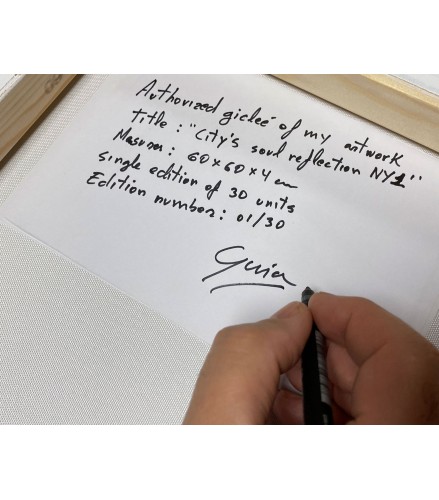 Authorized giclée of my artwork
title: "City's soul reflection NY1"
Masura: 60x60x4 cm
single edition of 30 units
Edition number: 01/30
Guia